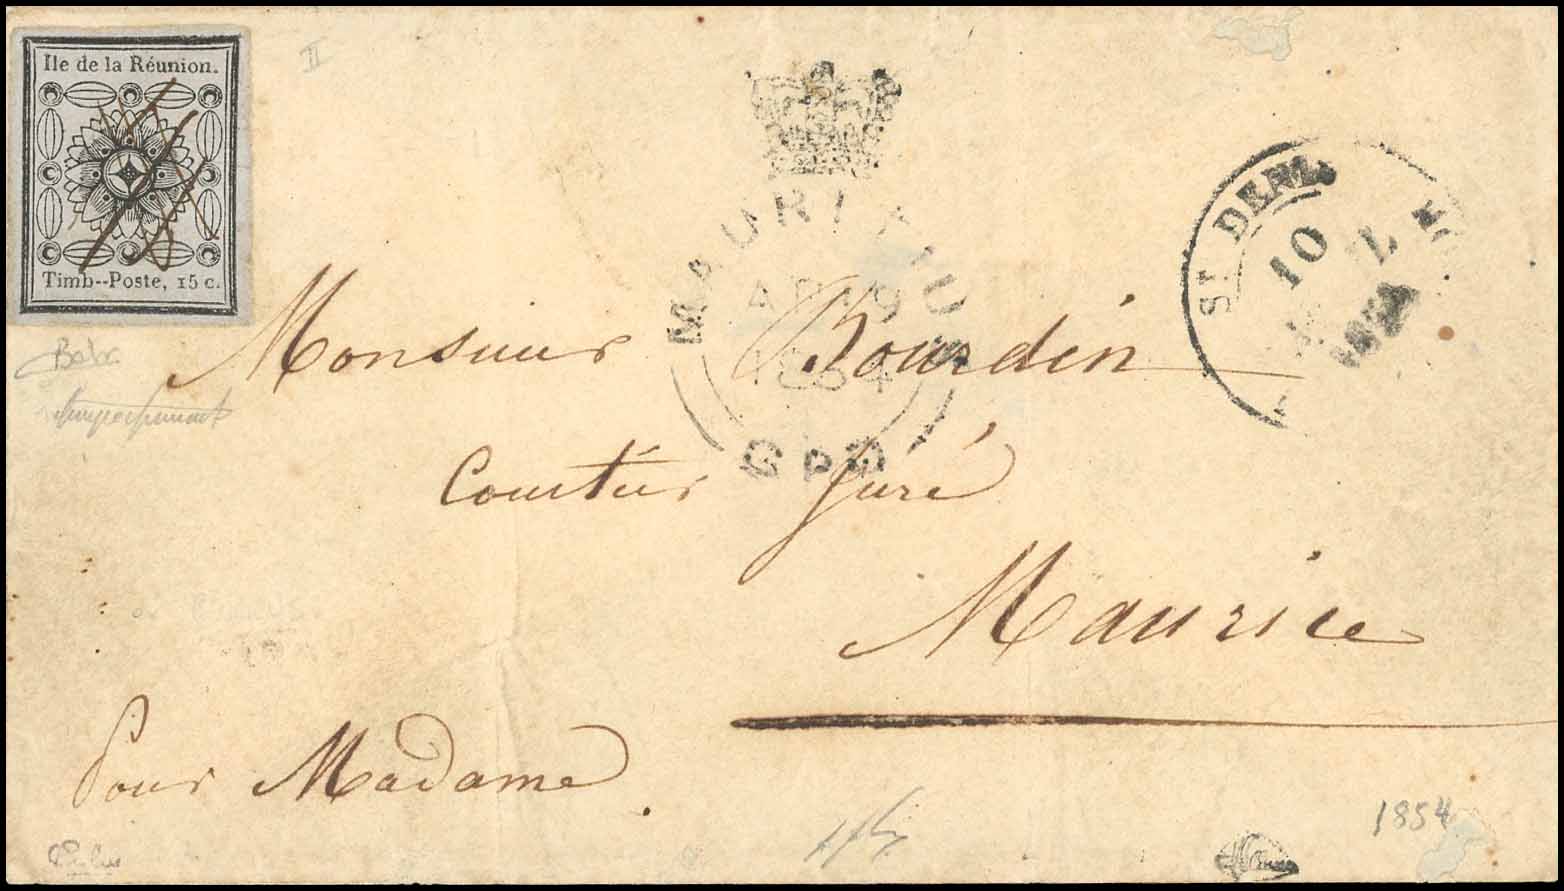 Ile de la Réunion.
Timb--Poste, 15 c.
II
MAURITIUS
AP 19
1854
GPO
St DENIS
10
Monsieur Bourdin
Courtier Juré
Maurice
Pour Madame.
1854